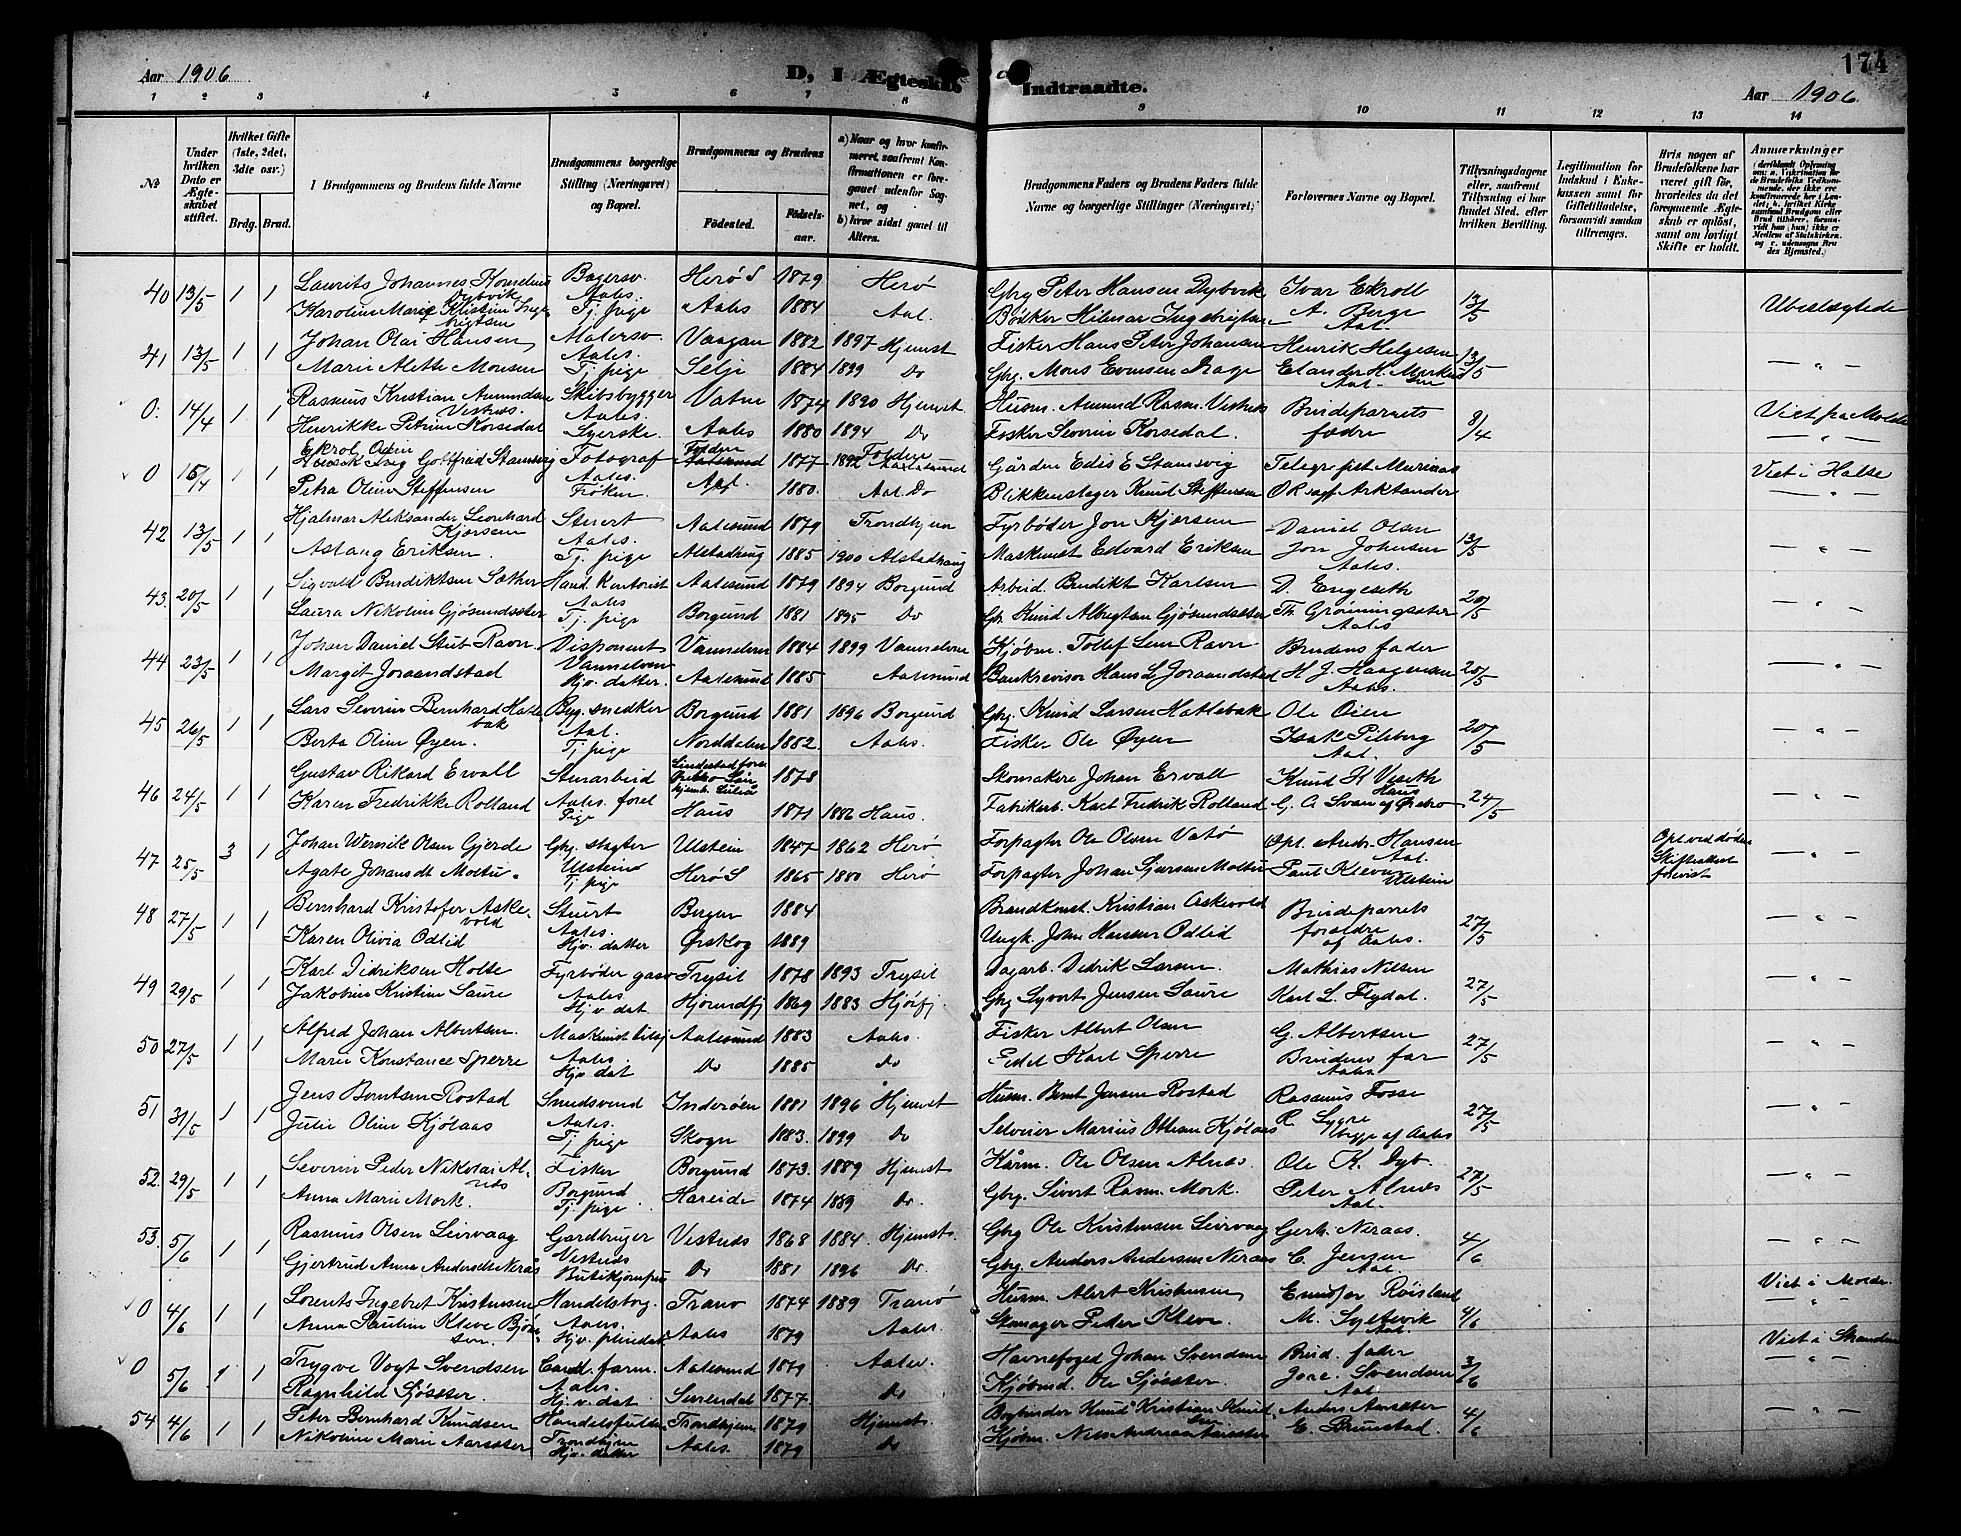 174
Aar 1906 D, I Ægteskab Indtraadte. Aar 1906
1 2 3 4 5 6 7 8 9 10 11 12 13 14
No
Under hvilken Dato er Ægteskabet stiftet.
Hvilket Gifte (1ste, 2det, 3dte osv.)
Brdg. Brud.
I Brudgommens og Brudens fulde Navne
Brudgommens borgerlige Stilling (Næringsvei) og Bopæl.
Brudgommens og Brudens
Fødested. Fødselsaar.
a) Naar og hvor konfirmeret, saafremt Konfirmationen er foregaaet udenfor Sognet, og
b) hvor sidst gaaet til Alters.
Brudgommens Faders og Brudens Faders fulde Navne og borgerlige Stillinger (Næringsvei).
Forlovernes Navne og Bopæl.
Tillysningsdagene eller, saafremt Tillysning ei har fundet Sted, efter hvilken Bevilling.
Legitimation for Indskud i Enkekassen samt for Giftetilladelse, forsaavidt saadan tiltrænges.
Hvis nogen af Brudefolkene har været gift før, hvorledes da det foregaaende Ægteskab er opløst, samt om lovligt Skifte er holdt.
Anmærkninger
40 13/5 1 1 Laurits Johannes Kornelius Dybvik Bagersv. Herø S 1879 Herø Gbrg Peter Hansen Dybvik Ivar Ekroll 13/5 Ubeslægtede
Karoline Marie Kristine Ingebrigtsen Aales. Tj. pige Aales 1884 Aal. Bødker Hilmar Ingebrigtsen A. Berge Aal.
41 13/5 1 1 Johan Olai Hansen Malersv. Vaagan 1882 1897 Hjemst Fisker Hans Peter Johansen Henrik Helgesen 13/5 — " —
Marie Alette Monsen Aales. Tj. pige Selje 1884 1899 Do Gbg. Mons Evensen Drage Elander H. Myrkel Aal.
0. 14/4 1 1 Rasmus Kristian Amundsen Vestnes Skibsbygger Vatne 1874 1890 Hjemst Husm. Amund Rasm. Vestnes Brudeparrets 8/4 Viet paa Molde
Henrikke Petrine Korsedal Aales. Syerske. Aales 1880 1894 Do Fisker Severin Korsedal. fædre — " —
0 15/4 1 1 Ekrol Odin Gottfrid Stamsvig Fotograf Folden 1877 1892 Folden Gårdm Edis E Stamsvig Telegr. Viet i Halse
Petra Oline Steffensen Aales. Frøken. Aal. 1880. Aal. Do Blikkenslager Knud Steffensen O R Arktander — " —
42 13/5 1 1 Hjalmar Aleksander Leonhard Kjørsem Stuert Aalesund 1879 Trondhjem Fyrbøder Jon Kjørsem Daniel Olsen 13/5 — " —
Aslaug Eriksen. Aales. Tj. pige Alstadhaug 1885 1900 Alstadhaug Maskinist Edvard Eriksen Jon Johnsen Aales.
43. 20/5 1 1 Sigvald Benediktsen Sæther Hand. Kontorist Aalesund 1879 1894 Borgund Arbeid. Benedikt Karlsen D. Engeseth 20/5 — " —
Laura Nikoline Gjøsundsæter Aales Tj. pige Borgund 1881 1895 Do Gb. Knud Albrigtsen Gjøsundsæter Th. Grønningsæter Aales
44 23/5 1 1 Johan Daniel Stub Ravn. Disponent Vannelven 1884 1899 Vannelven Kjøbm. Tollef Lem Ravn Brudens fader 20/5 — " —
Margit Joraandstad Vannelven Hjv. datter. Aalesund 1885 Aalesund Bankrevisor Hans L Joraandstad H J. Haageman Aales.
45 26/5 1 1 Lars Severin Bernhard Hatlebak Byg. snedker Borgund 1881 1896 Borgund Gbg. Knud Larsen Hatlebak Ole Øien 20/5 — " —
Berta Oline Øyen. Aal. Tj. pige Norddalen 1882. Aales. Fisker Ole Øyen Isak Pilskog Aal.
46 24/5 1 1 Gustav Rikard Ervall Stenarbeid Lindestad 1878 Skomakere Johan Ervall Knud K Viseth Haus 24/5 — " —
Karen Fredrikke Rolland Aales. forel Pige Haus 1871 1886 Haus. Fabrikarb. Karl Fredrik Rolland G. A Svan af Ørebro
47 25/5 3 1 Johan Wernik Olsen Gjerde Gbg. slagter Ulstein 1847 1862 Herø Forpagter Ole Olsen Vatø Opt. Andr. Hansen Aal. Opl. ved døden — " —
Agate Johansdt Moltu. Ulstein Tj. pige Herø S 1865 1880 Herø Forpagter Johan Sjursen Moltu Paul Kleven Ulstein Skifteattest forevist
48 27/5 1 1 Bernhard Kristofer Askevold Stuert Bergen 1884 Brandkonst. Kristian Askevold Brudeparrets 27/5 — " —
Karen Olivia Ødlid Aales. Hjv. datter Ørskog 1889 Ungk. John Hansen Ødlid forældre af Aales.
49 29/5 1 1 Karl Didriksen Holte Fyrbøder gasv Trysil 1878 1893 Trysil Dagarb. Didrik Larsen. Mathias Nilsen 27/5 — " —
Jakobine Kristine Saure Aales Hjv dat Hjørundfj 1869 1883 Hjørfj. Gbg Syvert Jensen Saure Karl L. Flydal.
50 27/5 1 1 Alfred Johan Albertsen. Maskinist Aalesund 1883 Aales. Fisker Albert Olsen G. Albertsen 27/5 — " —
Marie Konstance Sperre Aales. Hjv dat Do 1885 Do Karl Sperre Brudens far Aales.
51 31/5 1 1 Jens Berntsen Rostad Smedsvend Inderøen 1881 1896 Hjemst Husm. Bernt Jensen Rostad Rasmus Fosse 27/5 — " —
Julie Oline Kjølaas Aales. Tj. pige Skogn 1883. 1899 Do Selveier Marius Olsen Kjølaas R. Lygre begge af Aales
52. 29/5 1 1 Severin Peder Nikolai Alnes Fisker Borgund 1873. 1889 Hjemst Kårm. Ole Olsen Alnes. Ole K. Dyb. 27/5 — " —
Anna Marie Mork. Borgund Tj. pige Hareide 1874 1889 Do Gbg. Sivert Rasm. Mork. Peter Alnes Aal.
53. 5/6 1 1 Rasmus Olsen Leirvaag Gardbruger Vestnes 1868 1884 Hjemst. Gbg Ole Kristensen Leirvaag Gert. Neraas. 4/6 — " —
Gjertrud Anna Andersdt Nerås Vestnes Do 1881 1896 Do. Gbg. Anders Andersen Neraas C. Jensen Aal.
0 4/6 1 1 Lorents Ingebret Kristensen Handelsbog. Tranø 1874 1889 Tranø Husm. Alert Kristensen Røisland 4/6 Viet i Molde
Anna Pauline Kleve Bjørnsen. Aales. Aales 1879 Aales. Skomager Peder Kleve. M. Syltevik Aal. — " —
0 5/6 1 1 Trygve Vogt Svendsen Cand. farm. Aalesund 1879 Aales. Havnefoged Johan Svendsen Brud. fader 3/6 Viet i Skranden
Ragnhild Sjøseter. Aales. Hjv. dat Surendal 1877. Do Kjøbmd. Ole Sjøseter. Svendsen Aal — " —
54 4/6 1 1 Peter Bernhard Knudsen Handelsfuldm Trondhjem 1879 Hjemst. Bogbinder Knud Kristian Knudsen Anders Aarsæter 4/6 — " —
Nikoline Marie Aarsæter Trondhjem Hjv. datter Aales. 1879 Do Kjøbm. Nils Andreas Aarsæter E. Brunstad.